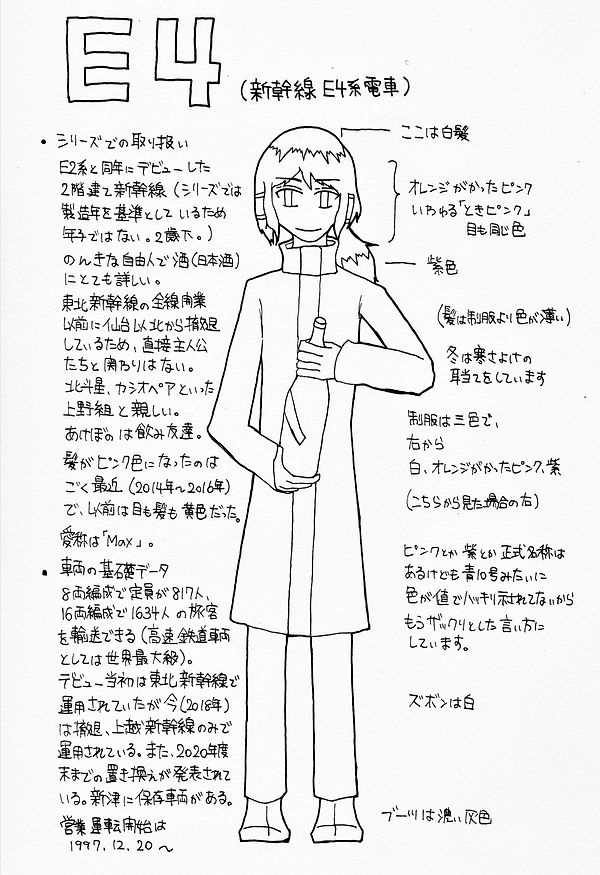 E4
(新幹線 E4系電車)
・シリーズでの取り扱い
E2系と同年にデビューした
2階建て新幹線(シリーズでは
製造年を基準としているため
年子ではない。2歳下。)
のんきな自由人で酒(日本酒)
にとても詳しい。
東北新幹線の全線開業
以前に仙台以北から撤退
しているため、直接主人公
たちと関わりはない。
北斗星、カシオペアといった
上野組と親しい。
あけぼのは飲み友達。
髪がピンク色になったのは
ごく最近(2014年〜2016年)
で、以前は目も髪も黄色だった。
愛称は「Max」。
・車両の基礎データ
8両編成で定員が817人、
16両編成で1634人の旅客
を輸送できる(高速鉄道車両
としては世界最大級)。
デビュー当初は東北新幹線で
運用されていたが今(2018年)
は撤退、上越新幹線のみで
運用されている。また、2020年度
末までの置き換えが発表されて
いる。新津に保存車両がある。
営業運転開始は
1997.12.20〜
ここは白髪
オレンジがかったピンク
いわゆる「ときピンク」
目も同じ色
紫色
(髪は制服より色が薄い)
冬は寒さよけの
耳当てをしています
制服は三色で、
右から
白、オレンジがかったピンク、紫
(こちらから見た場合の右)
ピンクとか紫とか正式名称は
あるけども青10号みたいに
色が値でハッキリ示されてないから
もうザックリとした言い方に
しています。
ズボンは白
ブーツは濃い灰色